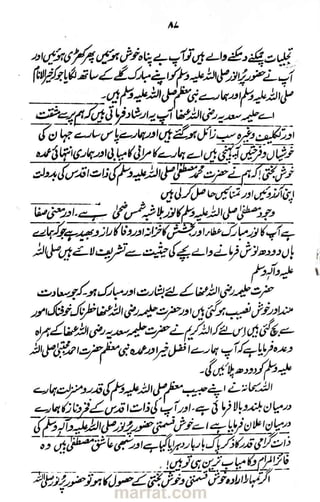 ۸۷
تجلیات چمکنے دمکنے والے ہیں تو آپ بے پناہ خوش ہوئیں پھر کھڑی ہوئیں اور
آپ نے حضور پر نور صلی اللہ علیہ وسلم کو اپنے مبارک گلے کے ساتھ لگایا جو کہ خیر الانام
صلی اللہ علیہ وسلم اور ہمارے نبی معظم صلی اللہ علیہ وسلم ہیں۔
اے حلیمہ سعدیہ رضی اللہ عنہا آپ یہ ارشاد فرماتی ہیں کہ ہم پر سے مشقت
اور تکلیف وغیرہ سب زائل ہو گئے ہیں اور ہمارے پاس سارے جہان کی
خوشیاں و فرحتیں آ پہنچی ہیں اے ہمارے کامرانی کامیابی اور ہماری انتہائی عمدہ
خوش بختی! کہ ہم نے حضرت محمد مصطفیٰ صلی اللہ علیہ وسلم کی ذات اقدس کی بدولت
اپنی آرزوئیں اور تمنائیں حاصل کر لی ہیں
وجود مصطفیٰ صلی اللہ علیہ وسلم کا نور بلاشبہ شمس ضحیٰ ہے۔ اور معنی صفا
ہے آپ کا نور مبارک عطا اور بخشش کا خزانہ اور وفا کا راز و بھید ہے جو کہ ہمارے
ہاں دودھ نوش فرمانے والے بچے کی حیثیت سے تشریف لائے ہیں صلی اللہ
علیہ وآلہ وسلم
حضرت حلیمہ رضی اللہ عنہا کے لئے بشارت اور مبارک ہو۔ کہ جو سعادت
مند اور خوش نصیب ہو گئی ہیں اور حضرت حلیمہ رضی اللہ عنہا خطرناک خوفناک امور
سے بچ گئی ہیں اس لئے کہ اللہ کریم نے حضرت حلیمہ سعدیہ رضی اللہ عنہا کے ہمراہ
وعدہ فرمایا ہے کہ آپ ہمارے افضل خیر اور عمدہ نبی معظم حضرت احمد مجتبیٰ صلی اللہ
علیہ وسلم کو دودھ پلائیں گی۔
اللہ سبحانہ نے اپنے حبیب معظم صلی اللہ علیہ وسلم کی قدر و منزلت ہمارے
درمیان بلند و بالا فرمائی ہے۔ اور آپ کی ذات اقدس کے فخر و ناز کا ہمارے
درمیان اعلان فرمایا ہے اے خوش قسمتی حضور پر نور صلی اللہ علیہ وآلہ وسلم کی
ذات گرامی قدر کا ذکر پاک بار بار دہرایا گیا ہے اور سبھی عاشق مصطفیٰ ہیں وہ
فائز المرام و کامیاب ترین ہی تو ہیں!
اگر تمہارا ارادہ خوش قسمتی و خوش بختی کے حصول کا ہو تو حضور پر نور صلی اللہ
marfat.com